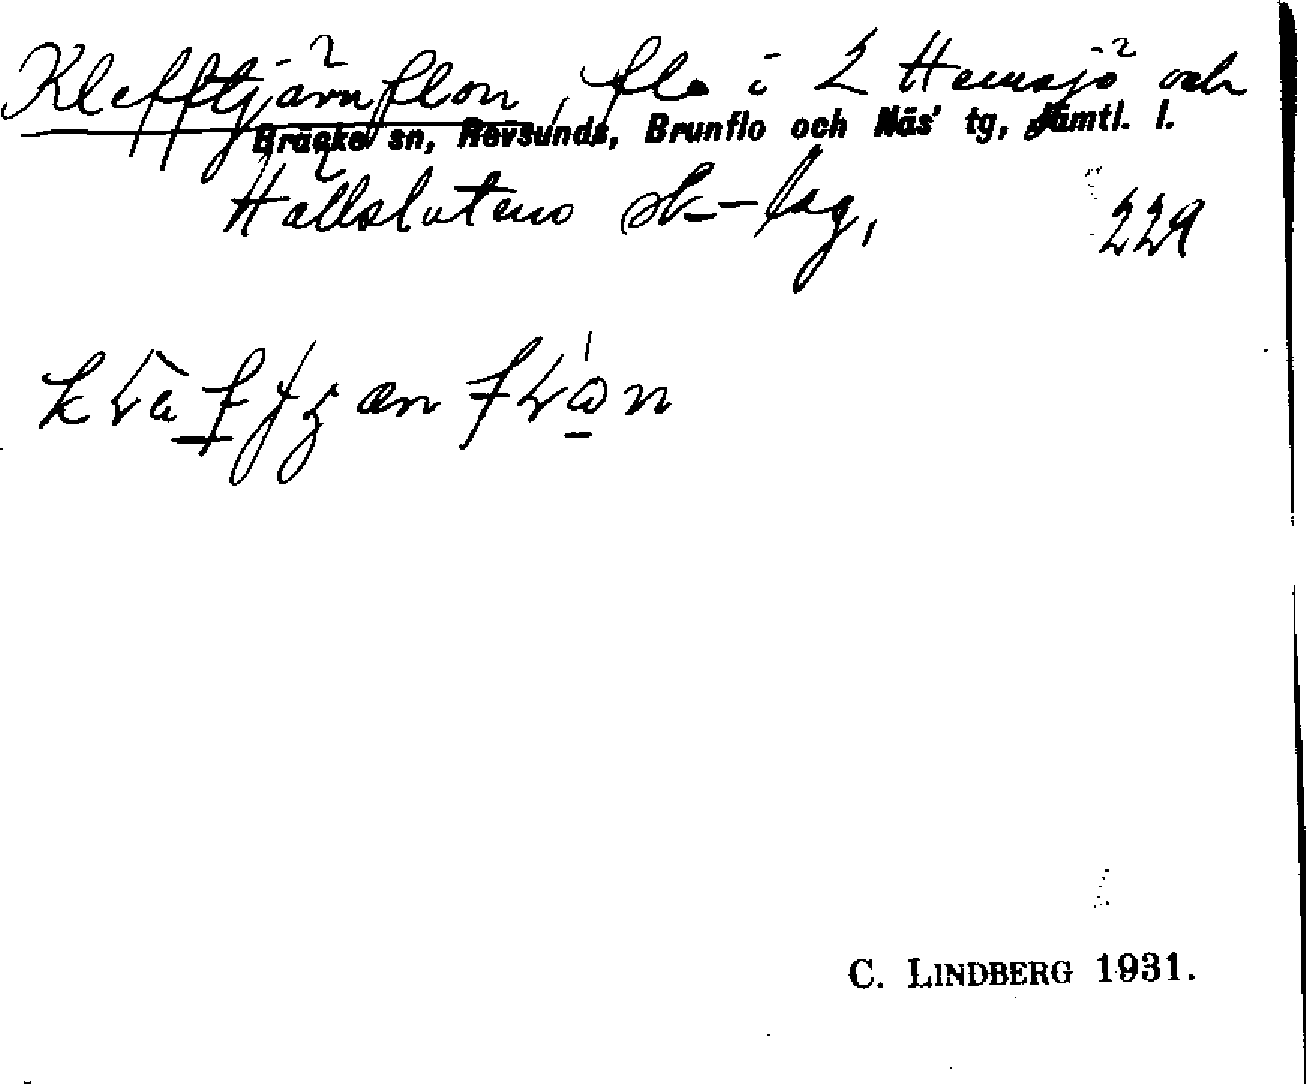 Klefftjärnflon, flo i L Hemsjö och
Bräcke sn, Revsunds, Brunflo och Näs' tg, Jämtl. l.
Hällslutens sk-lag,
229
C. LINDBERG 1931.